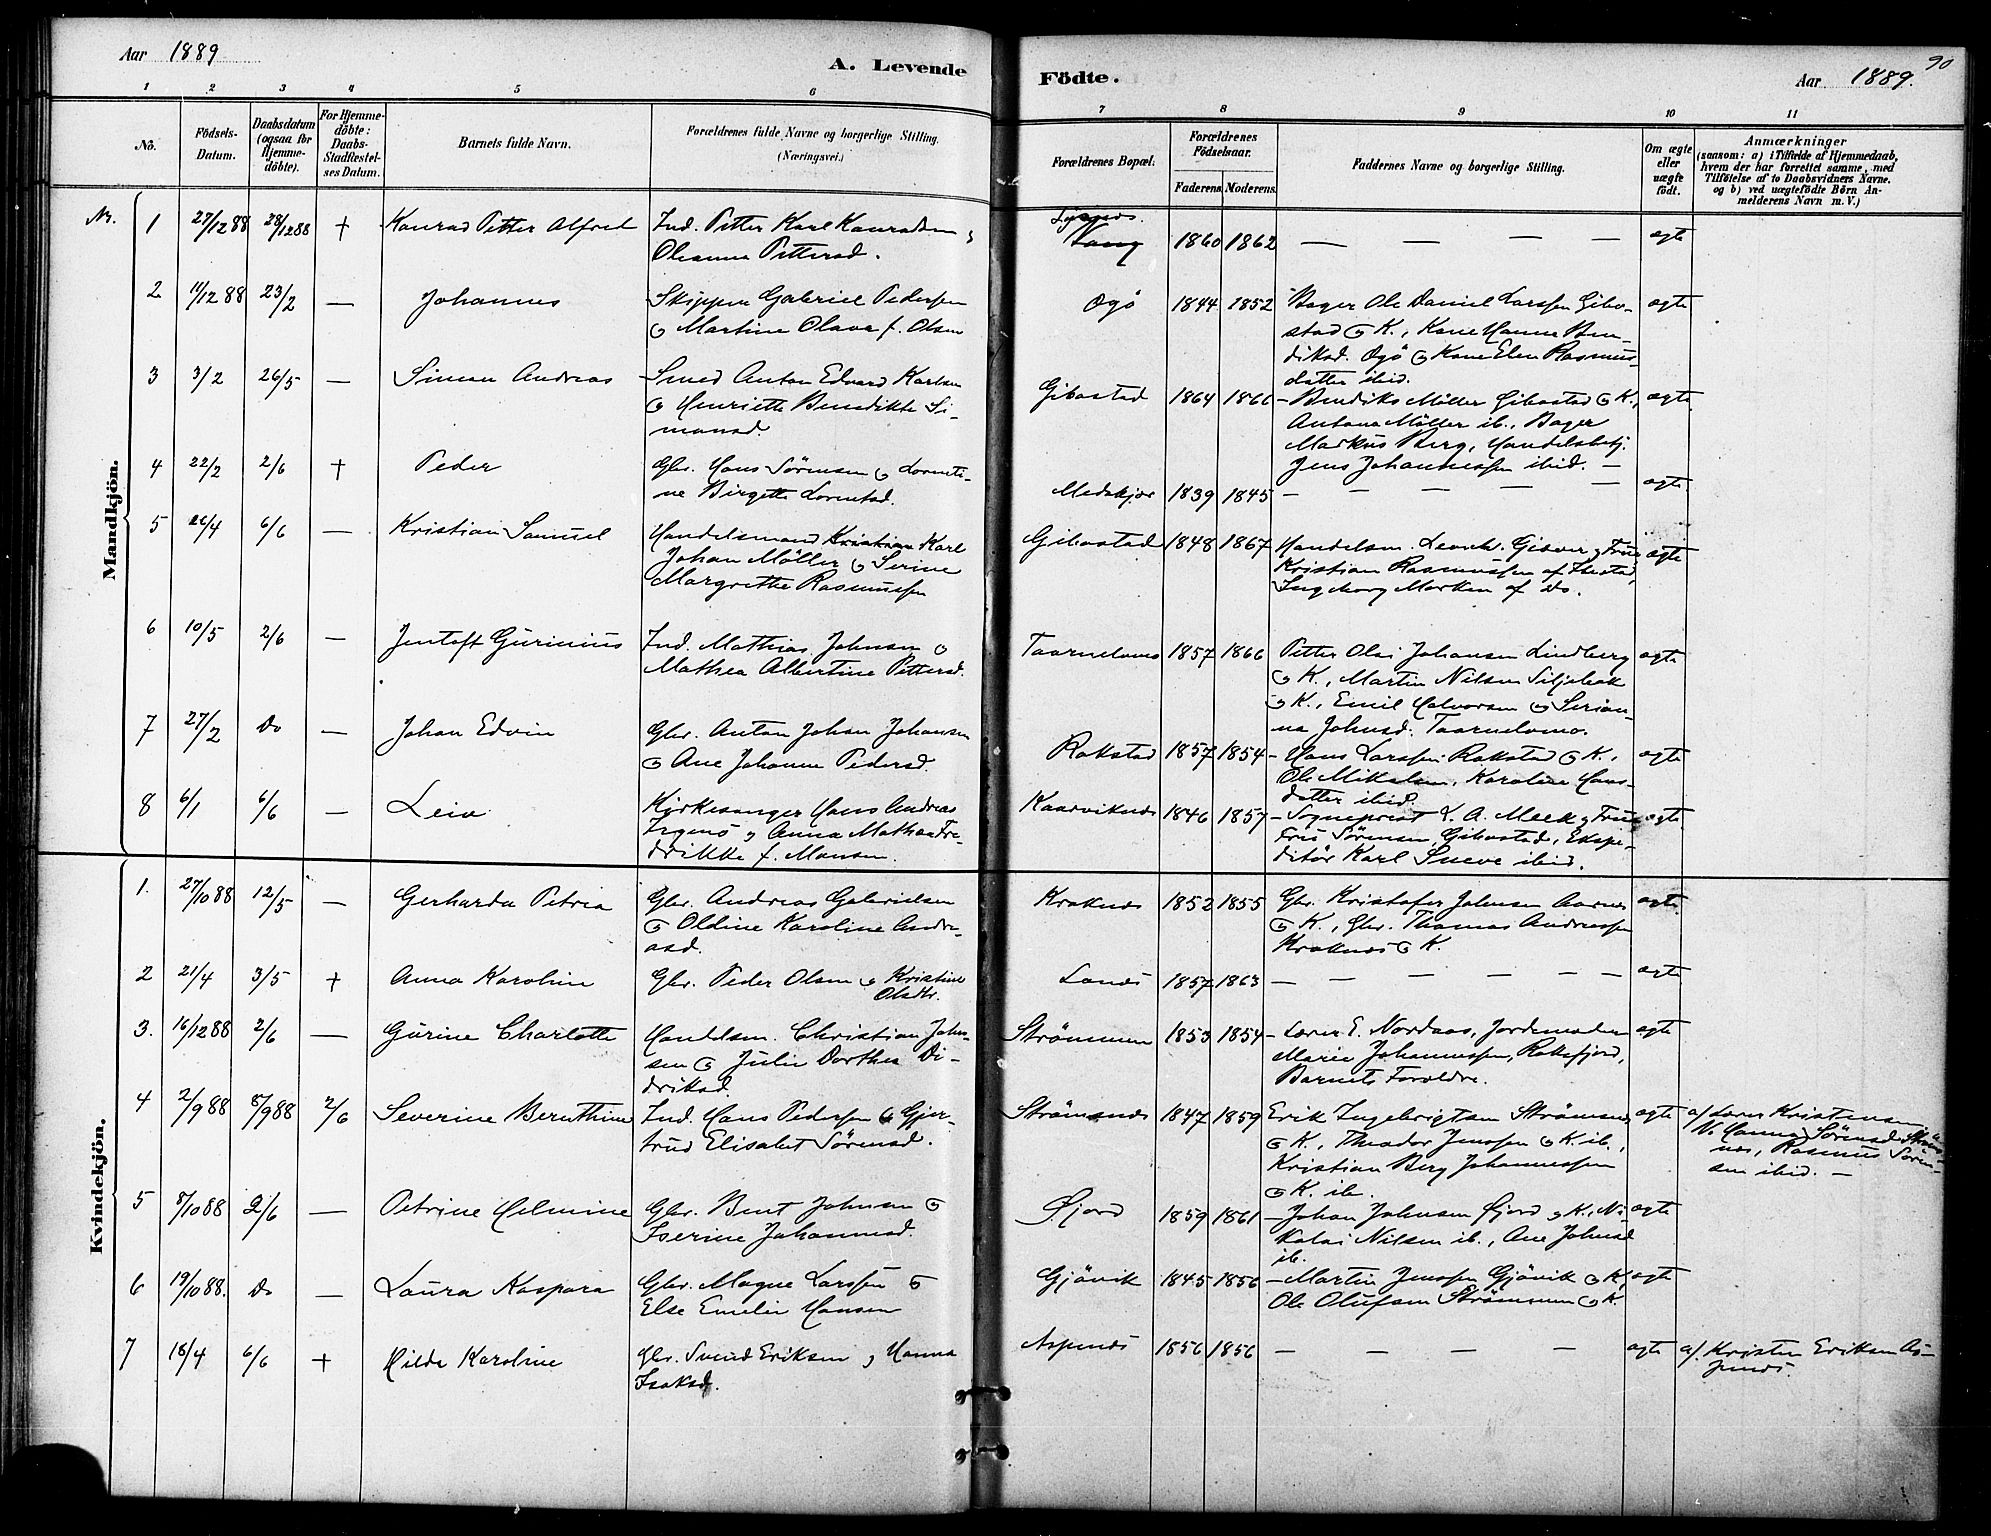 Aar 1889
A. Levende
Födte.
Aar 1889.
90
1
2
3
4
5
6
7
8
9
10
11
No.
Födsels-
Datum.
Daabsdatum
(ogsaa for
Hjemme-
döbte).
For Hjemme-
döbte:
Daabs-
Stadfæstel-
ses Datum.
Barnets fulde Navn.
Forældrenes fulde Navne og borgerlige Stilling.
(Næringsvei.)
Forældrenes Bopæl.
Forældrenes
Födselsaar.
Faderens.
Moderens.
Faddernes Navne og borgerlige Stilling.
Om ægte
eller
uægte
födt.
Anmærkninger
(saasom: a) i Tilfælde af Hjemmedaab,
hvem der har forrettet samme, med
Tilföielse af to Daabsvidners Navne.
og b) ved uægtefödte Börn An-
melderens Navn m. V.)
Mandkjön.
Nr. 1 27/12 88 28/12 88 + Konrad Petter Alfred Ind. Petter Karl Konradsen &
Oleanna Pettersd.
Vang 1860 1862 — — — — ægte
2 11/12 88 23/2 — Johannes Skipper Gabriel Pedersen
& Martine Olava f. Olsen
Ogö 1844 1852 Bager Ole Daniel Larssen Gibo-
stad & K., Kone Hanne Ben-
diksd. Ogö & Kone Elen Rasmus
datter ibid.
ægte
3 3/2 26/5 — Simon Andreas Smed Anton Edvard Karlsen
& Henriette Benedikte Si-
monsd.
Gibostad 1864 1866 — Bendiks Möller Gibostad & K.,
Antona Möller ib., Bager
Markus Berg, Handelsbetj.
Jens Johannessen ibid. —
ægte
4 22/2 2/6 + Peder Gbr. Hans Sörensen & Lornti-
ne Birgitte Lorentsd.
Medskjær 1839 1845 — — — — — ægte
5 26/4 6/6 — Kristian Samuel Handelsmand Kristian Karl
Johan Möller & Serine
Margrethe Rasmussen
Gibostad 1848 1867 Handelsm. Leonh. Gisver & Frue
Kristian Rasmussen af
Ingeborg Marken af Do.
ægte
6 10/5 2/6 — Jentoft Gurinius Ind. Mathias Johnsen &
Mathea Albertine Pettersd.
Taarnelvmo 1857 1866 Petter Olai Johansen Lindberg
& K., Martin Nilsen Siljebak
& K., Emil Halvorsen & Serian-
na Johnsd. Taarnelvmo.
ægte
7 27/2 Do — Johan Edvin Gbr. Anton Johan Johansen
& Ane Johanna Pedersd.
Rakstad 1857 1854 — Hans Larssen Rakstad & K.,
Ole Mikalsen, Karoline Hans-
datter ibid.
ægte
8 6/1 6/6 — Leiv Kirkesanger Hans Andreas
Irgens & Anna Mathea Fre-
drikke f. Hansen.
Kaarviknes 1846 1857 — Sogneprest L. A. Meek & Frue
Frü Sörensen Gibostad, Ekspe-
ditör Karl Sneve ibid.
ægte
Kvindekjön.
1. 27/10 88 12/5 — Gerharda Petria Gbr. Andreas Gabrielsen
& Oldine Karoline Andre-
asd.
Kraknes 1852 1855 Gbr. Kristofer Johnsen Aarnes
& K., Gbr. Thomas Andreassen
Kraknes & K.
ægte
2 21/4 3/5 + Anna Karoline Gbr. Peder Olsen & Kristine
Olsdtr.
1857 1863 — — — — — — ægte
3. 16/12 88 2/6 — Gurine Charlotte Handelsm. Christian John-
sen & Julie Dorthea Di-
driksd.
Strömmen 1853 1854 — Lærer E. Nordaas, Jordemoder
Marie Johannessen, Rossfjord,
Barnets Forældre.
ægte
4 2/9 88 8/9 88 2/6 Severine Beruthine Ind. Hans Pedersen & Gjer-
trud Elisabet Sörensd.
Strömsnes 1847 1859 Erik Ingebrigtsen Strömsnes
& K., Theodor Jenssen & K. ib.,
Kristian Berg Johannessen
& K. ib.
ægte a/ Lærer Kristensen
V. Hanna Sörensd. Ström-
nes, Rasmus Sören-
sen ibid. —
5 8/10 88 2/6 — Petrine Helmine Gbr. Bent Johnsen &
Iserine Johannesd.
Öjord 1859 1861 — Johan Johnsen Öjord & K., Ni-
kolai Nilsen ib., Ane Johnsd
ib.
ægte
6 19/10 88. Do — Laura Kaspara Gbr. Magne Larssen &
Else Emelie Hansen
Gjövik 1845 1856 — Martin Jenssen Gjövik & K.,
Ole Olufsen Strömmen & K.
ægte
7 18/4 6/6 + Hilda Karoline Gbr. Svend Eriksen & Hanna
Isaksd.
Aspenes 1856 1856 — — — — ægte a/ Kristen Eriksen As-
penes.